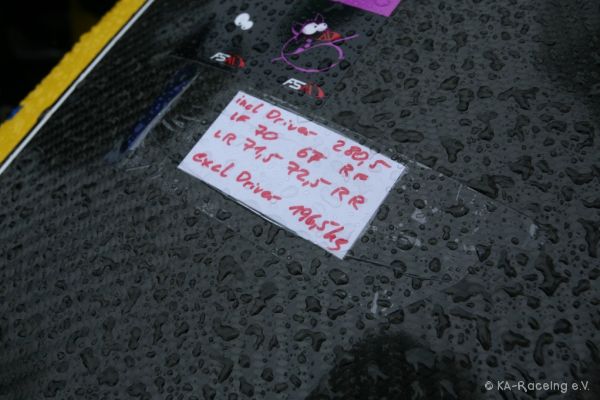 incl Driver 280,5
LF 70 67 RF
LR 71,5 72,5 RR
excl Driver 196,5kg
© KA-RaceIng e.V.